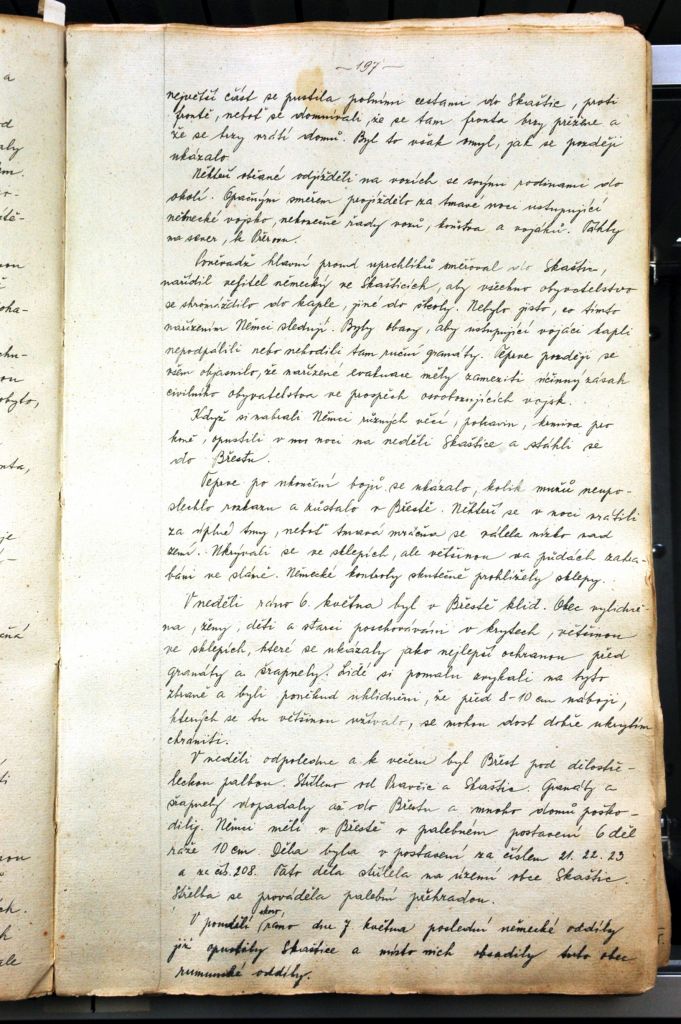 – 197 –
největší část se pustila polními cestami do Skaštic, proti
frontě, neboť se domnívali, že se tam fronta brzy přežene a
že se brzy vrátí domů. Byl to však omyl, jak se později
ukázalo.
Někteří občané odjížděli na vozích se svými rodinami do
okolí. Opačným směrem projíždělo za tmavé noci ustupující
německé vojsko, nekonečné řady vozů, koňstva a vojáků. Táhly
na sever, k Přerovu.
Poněvadž hlavní proud uprchlíků směřoval do Skaštic,
nařídil velitel německý ve Skašticích, aby všechno obyvatelstvo
se shromáždilo do kaple, jiné do školy. Nebylo jisto, co tímto
nařízením Němci sledují. Byly obavy, aby ustupující vojáci kapli
nepodpálili nebo nehodili tam ruční granáty. Teprve později se
vším objasnilo, že nařízené evakuace měly zameziti účinný zásah
civilního obyvatelstva ve prospěch osvobozujících vojsk.
Když si nabrali Němci různých věcí, potravin, krmiva pro
koně, opustili v noci na neděli Skaštice a stáhli se
do Břestu.
Teprve po ukončení bojů se ukázalo, kolik mužů neupo-
slechlo rozkazu a zůstalo v Břestě. Někteří se v noci vrátili
za úplné tmy, neboť tmavá mračna se válela nízko nad
zemí. Ukrývali se ve sklepích, ale většinou na půdách zahra-
báni ve slámě. Německé kontroly skutečně prohlížely sklepy.
V neděli ráno 6. května byl v Břestě klid. Obec vylidně-
na, ženy, děti a starci poschováváni v krytech, většinou
ve sklepích, které se ukázaly jako nejlepší ochranou před
granáty a šrapnely. Lidé si pomalu zvykali na tyto
zbraně a byli poněkud uklidněni, že před 8-10 cm náboji,
kterých se tu většinou užívalo, se mohou dost dobře ukrytím
chrániti.
V neděli odpoledne a k večeru byl Břest pod dělostře-
leckou palbou. Stříleno od Pravčic a Skaštic. Granáty a
šrapnely dopadaly až do Břestu a mnoho domů poško-
dily. Němci měli v Břestě v palebném postavení 6 děl
ráže 10 cm. Děla byla v postavení za číslem 21. 22. 23
a za čís. 208. Tato děla střílela na území obce Skaštic.
Střelba se prováděla palební přehradou.
V pondělí ráno dne 7 května poslední německé oddíly
již opustily Skaštice a místo nich obsadily tuto obec
rumunské oddíly.